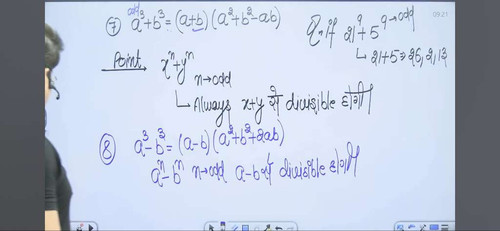 odd
⑦ a³+b³ = (a+b) (a²+b²-ab)
Q. if 21⁹ + 5⁹→odd
↳ 21+5=26, 2, 13
Point xⁿ+yⁿ
n→odd
↳ Always x+y से divisible होगी
⑧ a³-b³ = (a-b) (a²+b²+2ab)
aⁿ-bⁿ n→odd a-b से divisible होगी
09:21